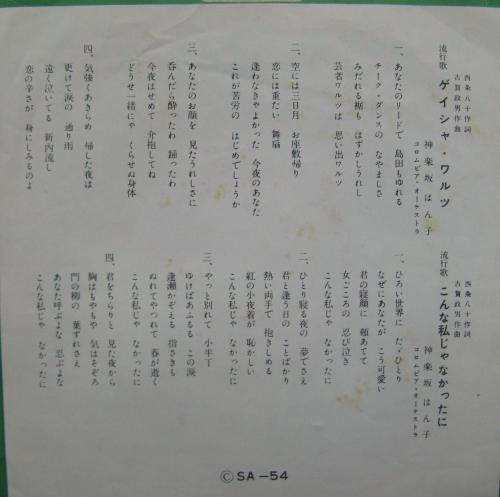 西条八十作詞
古賀政男作曲
流行歌 ゲイシャ・ワルツ
神楽坂はん子
コロムビア・オーケストラ
一、あなたのリードで 島田もゆれる
チーク・ダンスの なやましさ
みだれる裾も はずかしうれし
芸者ワルツは 思い出ワルツ
二、空には三日月 お座敷帰り
恋には重たい 舞扇
逢わなきゃよかった 今夜のあなた
これが苦労の はじめでしょうか
三、あなたのお顔を 見たうれしさに
呑んだら酔ったわ 踊ったわ
今夜はせめて 介抱してね
どうせ一緒にゃ くらせぬ身体
四、気強くあきらめ 帰した夜は
更けて涙の 通り雨
遠く泣いてる 新内流し
恋の辛さが 身にしみるのよ
西条八十作詞
古賀政男作曲
流行歌 こんな私じゃなかったに
神楽坂はん子
コロムビア・オーケストラ
一、ひろい世界に たゞひとり
なぜにあなたが こう可愛い
君の寝顔に 頬あてて
女ごころの 忍び泣き
こんな私じゃ なかったに
二、ひとり寝る夜の 夢でさえ
君と逢う日の ことばかり
熱い両手で 抱きしめる
紅の小夜着が 恥かしい
こんな私じゃ なかったに
三、やっと別れて 小半丁
ゆけばあふるる この涙
逢瀬かぞえる 指さきも
ぬれてやつれて 春が逝く
こんな私じゃ なかったに
四、君をちらりと 見た夜から
胸はもやもや 気はそぞろ
門の柳の 葉ずれさえ
あなた呼ぶよな 忍ぶよな
こんな私じゃ なかったに
Ⓒ SA-54